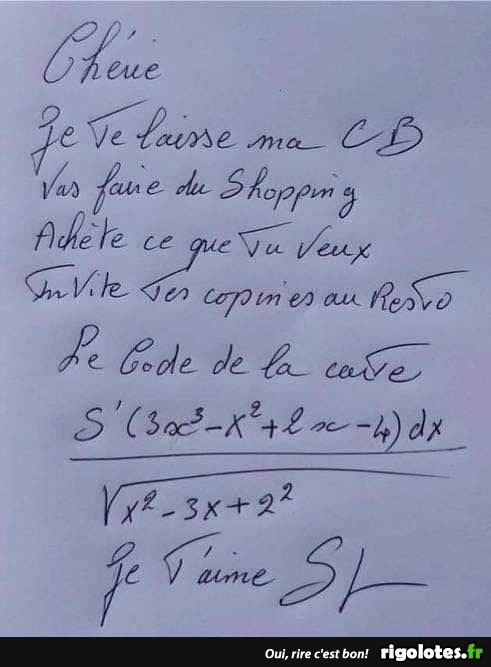 Chérie
Je Te laisse ma CB
Vas faire du Shopping
Achète ce que Tu Veux
InVite Tes copines au ResTo
Le Code de la carTe
S'(3x³-x²+2x-4)dx
√x²-3x+2²
Je T'aime SL
Oui, rire c'est bon! rigolotes.fr